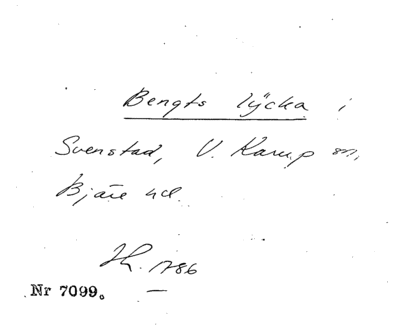 Bengts lycka i
Svenstad, V. Karup sn,
Bjäre hd.
Hh. 1786
Nr 7099.